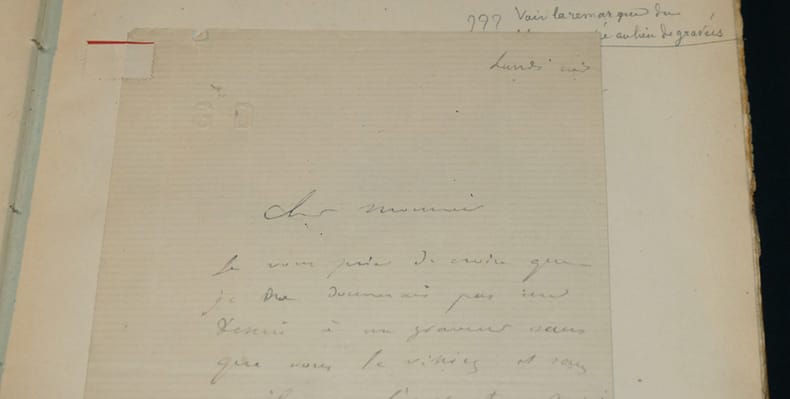 ??? Voir la remarque du
au lieu de gravés
Lundi soir
Cher Monsieur
Je vous prie de croire que
je ne donnerais pas un
dessin à un graveur sans
que vous le visiez et sans